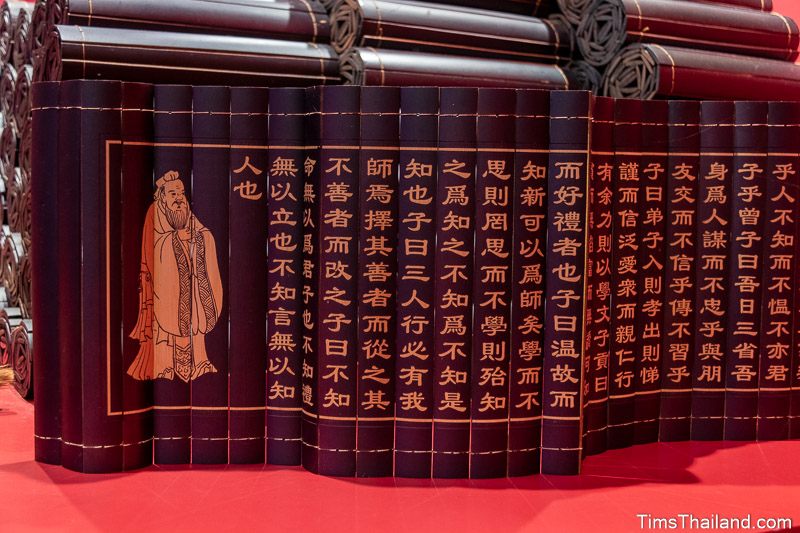 乎人不知而不慍不亦君
子乎曾子曰吾日三省吾
身爲人謀而不忠乎與朋
友交而不信乎傳不習乎
子曰弟子入則孝出則悌
謹而信泛愛衆而親仁行
有余力則以學文子貢曰
而好禮者也子曰温故而
知新可以爲師矣學而不
思則罔思而不學則殆知
之爲知之不知爲不知是
知也子曰三人行必有我
師焉擇其善者而從之其
不善者而改之子曰不知
命無以爲君子也不知禮
無以立也不知言無以知
人也
TimsThailand.com